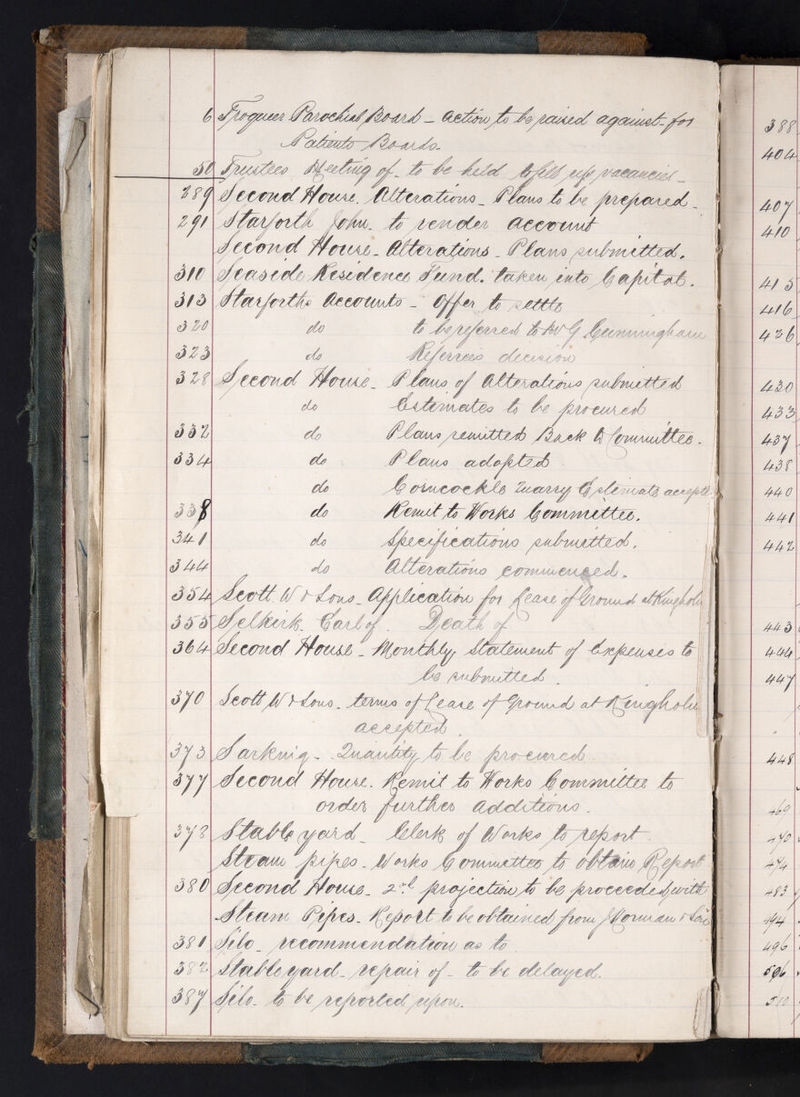 6 Troqueer Parochial Board - Action to be raised against - for
Patients Boards.
50 Trustees Meeting of - to be held to fill up vacancies -
289 Second House. Alterations - Plans to be prepared -
291 Starforth John. to render account
Second House - Alterations - Plans submitted.
310 Seaside Residence Fund. taken into Capital.
313 Starforths Accounts - Offer to settle
320 do to be referred to W G Cunningham
323 do Referees decision
328 Second House - Plans of Alterations submitted
do Estimates to be procured
332 do Plans remitted Back to Committee.
334 do Plans adopted
do Corncockle Quarry Estimate accepte
338 do Remit to Works Committee.
341 do Specifications submitted.
344 do Alterations commenced.
354 Scott W & Sons - Application for Lease of Ground at Kingholm
355 Selkirk. Earl of. Death of
364 Second House - Monthly Statement of Expenses to
be submitted.
370 Scott W & Sons - terms of Lease of Ground at Kingholm
accepted.
373 Sarking - Quantity to be procured
377 Second House. Remit to Works Committee to
order further additions.
378 Stable yard - Clerk of Works to report.
Steam pipes - Works Committee to obtain Report
380 Second House - 2nd projection to be proceeded with
Steam Pipes - Report to be obtained from J Norman & Son
381 Silo - recommendation as to
382 Stableyard - repair of - to be delayed.
387 Silo - to be reported upon.
388
404
407
410
415
416
426
430
433
437
438
440
441
442
443
444
447
448
469
470
474
483
494
496
506